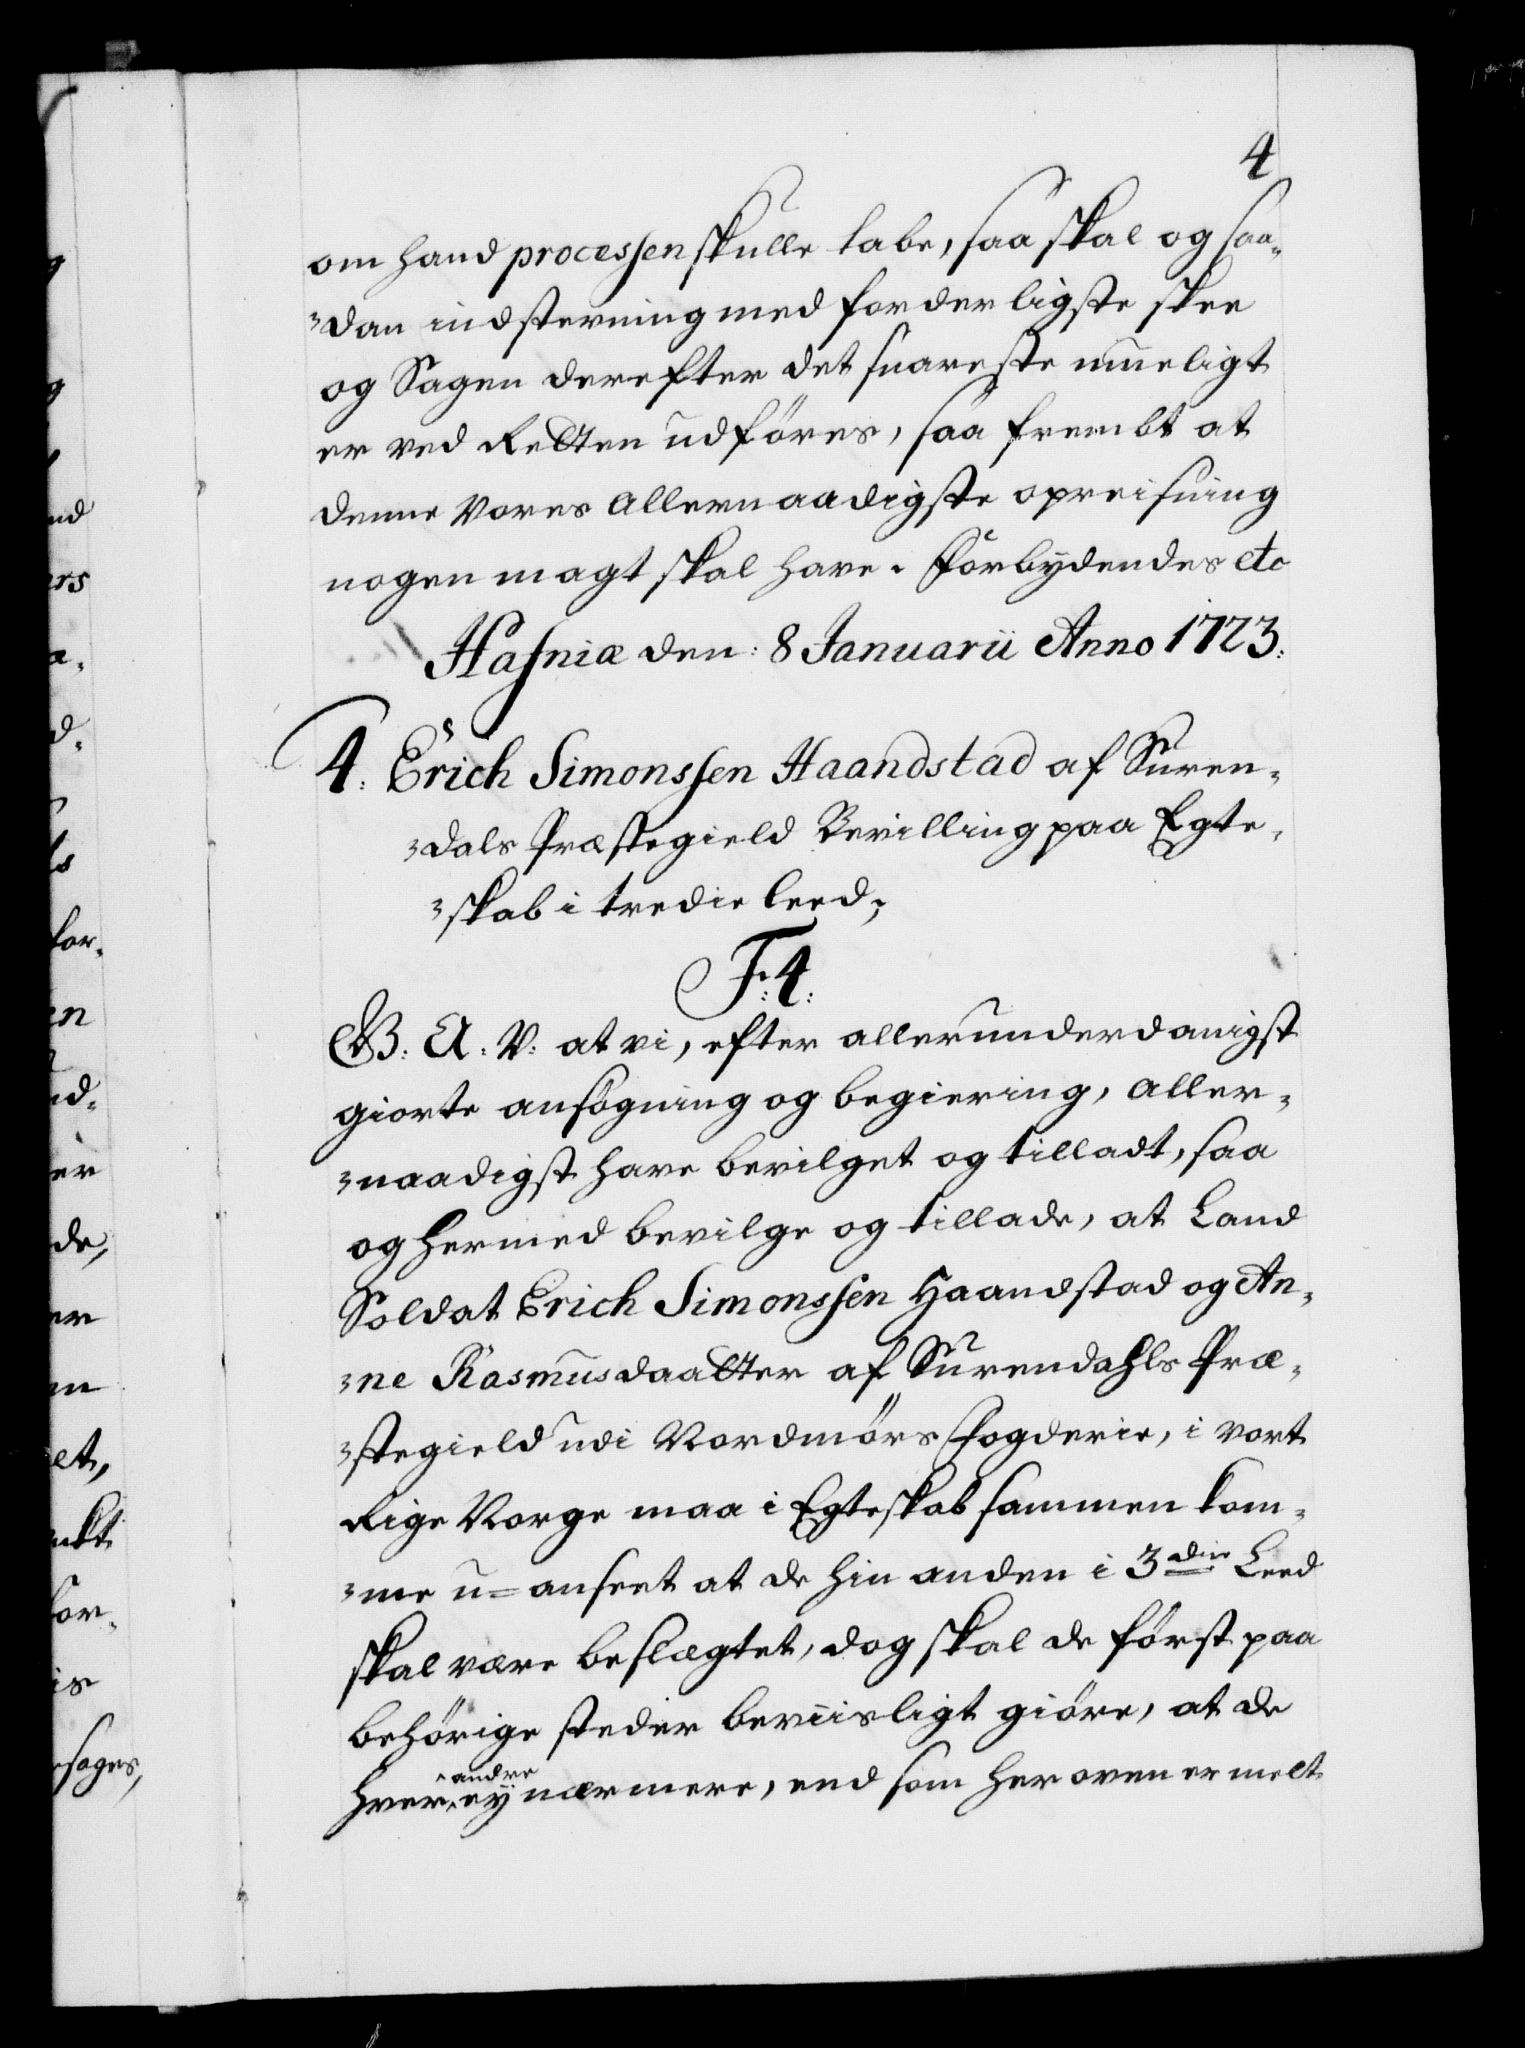 4
om hand processen skulle tabe, saa skal og saa„
„dan indsterning med forderligste skee
og Sagen derefter det snareste mueligt
er ved Retten udföres, saa frembt at
denne Vores allernaadigste opreisning
nogen magt skal have. Forbydendes etc
Hafniæ den: 8 Januarii Anno 1723:
4: Erich Simonssen Haandstad af Suren„
„dals Præstegield Bevilling paa Egte„
„skab i tredie leed;
F: 4:
G: A: V: at vi, efter allerunderdanigst
giorte ansøgning og begiering, aller„
„naadigst have bevilget og tilladt, saa
og hermed bevilge og tillade, at Land
Soldat Erich Simonssen Haandstad og An„
„ne Rasmusdaatter af Surendahls Præ„
„stegield udi Nordmörs Fogderie, i vort
Rige Norge maa i Egteskab sammen kom„
„me u=anseet at de hin anden i 3die Leed
skal være beslægtet, dog skal de först paa
behörige steder beviisligt giöre, at de
hver andre ey nærmere, end som her oven er melt
nd
ers
a„
d„
ts
for„
en
nd„
er
de,
er
en
et,
for„
is
sages,